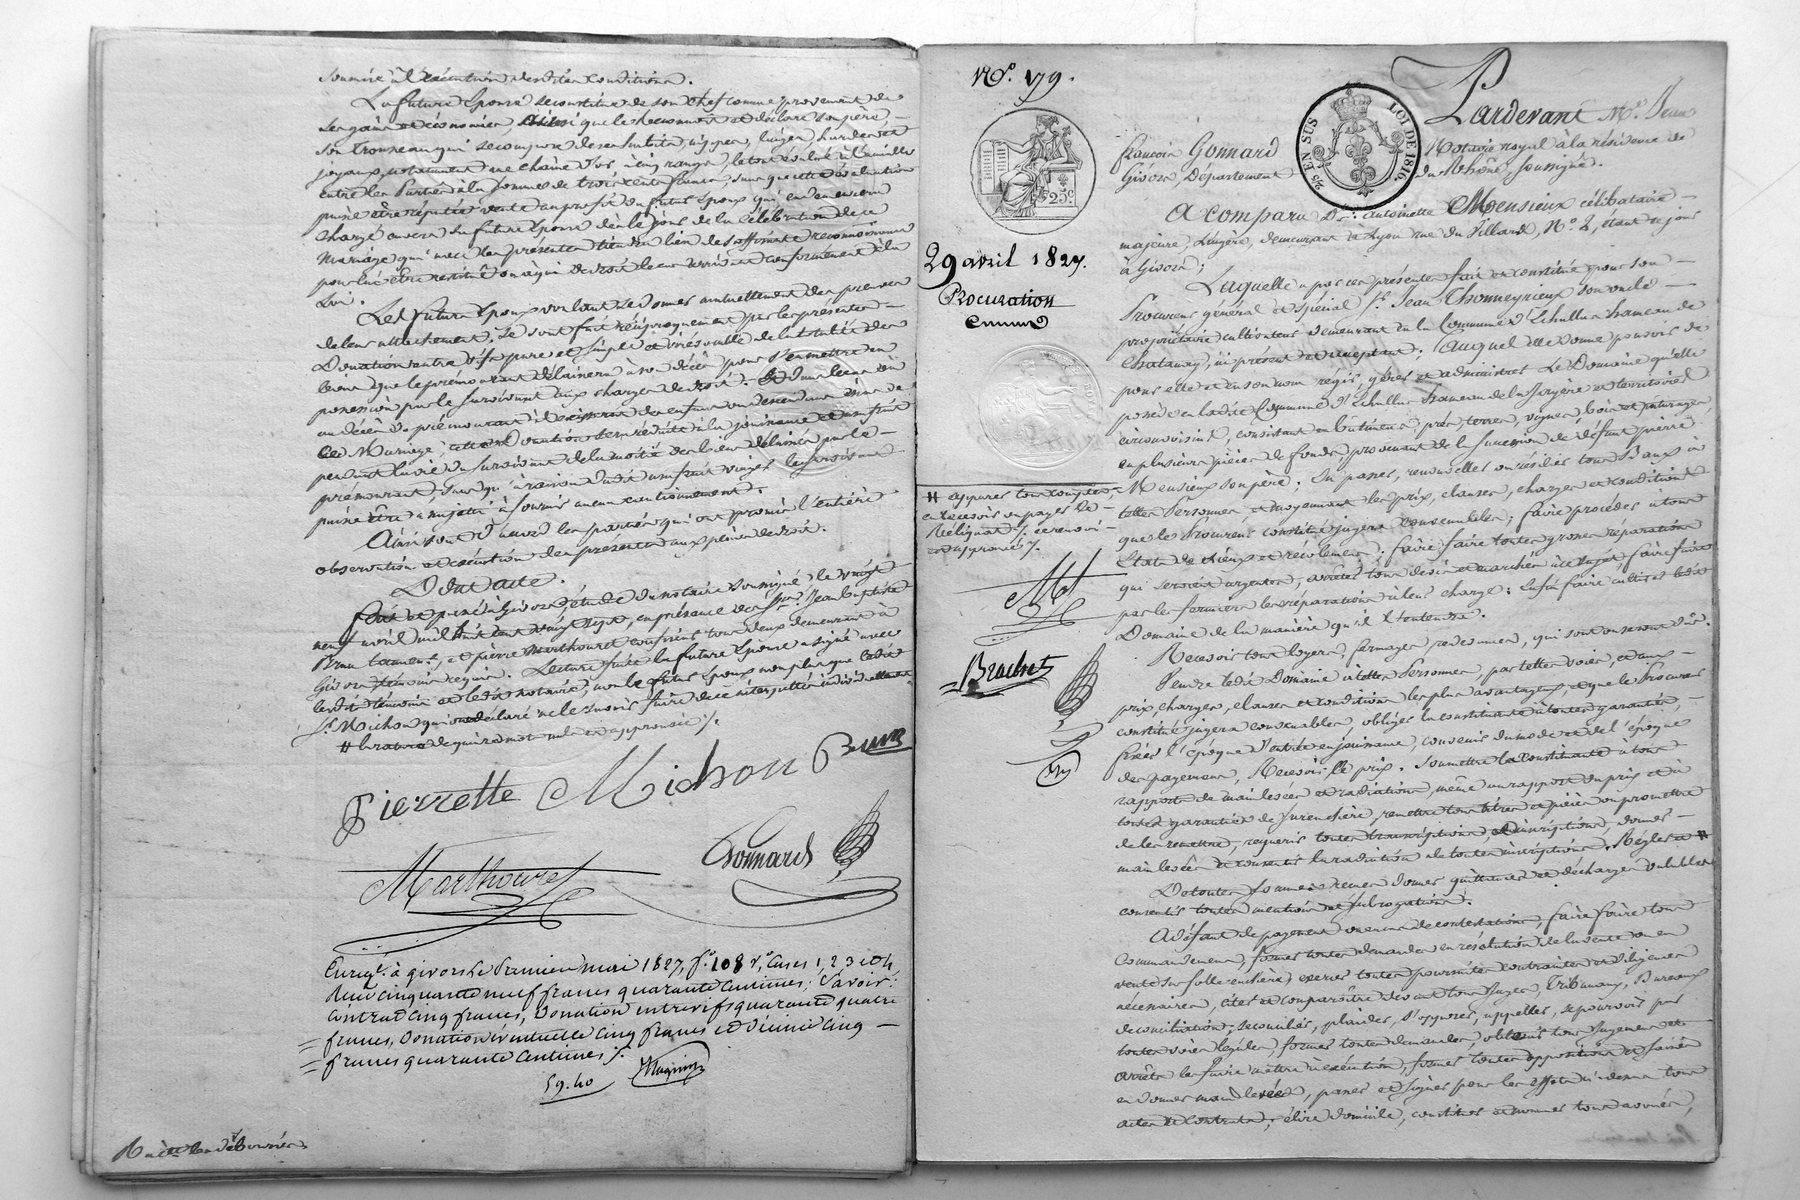 soumise à l'exécution desdites conditions.
La future Epouse se constitue de son chef comme provenant de
ses gains et économies, ainsi que le reconnoit et déclare son père,
son trousseau qui se compose de ses habits, nippes, linges, hardes et
joyaux, notamment une chaîne d'or à cinq rangs, le tout évalué à l'amiable
entre les Parties à la somme de trois cents francs, sans que cette évaluation
puisse être réputée vente au profit du futur Epoux qui en demeurera
chargé envers la future Epouse dès le jour de la célébration de ce
Mariage, qui avec les présentes tiendra lieu de suffisante reconnoissance
pour lui être restitué ou à qui de droit le cas arrivant conformément à la
Loi.
Les futurs Epoux voulant se donner mutuellement des preuves
de leur attachement, se sont fait réciproquement par les présentes
Donation entre vifs pure et simple et irrévocable de la totalité des
biens que le prémourant délaissera à son décès pour s'en mettre en
possession par le survivant aux charges de droit. Et dans le cas où
au décès du prémourant il existerait des enfans ou descendans issus de
ce Mariage, cette donation sera réduite à la jouissance et usufruit
pendant la vie du survivant de la moitié des biens délaissés par le
prémourant, sans qu'à raison dudit usufruit viager le survivant
puisse être assujetti à fournir aucun cautionnement.
Ainsi sont d'accord les parties qui ont promis l'entière
observation et exécution des présentes aux peines de droit.
Dont acte.
Fait et passé à Givors étude du notaire soussigné le vingt
neuf avril mil huit cent vingt sept, en présence des Srs. Jean Baptiste
et pierre Marthouret tous deux demeurant à
Givors témoins requis. Lecture faite la future Epouse a signé avec
lesdits témoins et ledit notaire, non le futur Epoux non plus que ledit
Sr. Michon qui ont déclaré ne le savoir faire de ce interpellés individuellement
# la rature de quinze mots nuls est approuvée /.
Pierrette Michon Brun
Gonnard
Marthouret
Enregé. à givors le Premier mai 1827, fo. 108 vo. Cases 1, 2 3 et 4
Reçu cinquante neuf francs quarante centimes; Savoir:
contrat cinq francs, Donation entrevifs quarante quatre
francs, Donation éventuelle cinq francs et Décime cinq
francs quarante centimes /.
59.40
No. 179.
29 avril 1827.
Procuration
25 EN SUS
LOI DE 1816
1 F 25 C
Pardevant Me. Jean
françois Gonnard Notaire royal à la résidence de
Givors, Département du Rhône, soussigné.
A comparu Dlle. Antoinette Monsieux célibataire
majeure, Lingère, demeurant à Lyon rue du Villard, No. 2, étant de jour
à Givors;
Laquelle a par ces présentes fait et constitué pour son
Procureur général et spécial Sr. Jean Thonneyrieux son oncle
propriétaire cultivateur demeurant en la Commune d'Echallas hameau de
Chatanay, ici présent et acceptant; Auquel elle donne pouvoir de
pour elle et en son nom régir, gérer et administrer Le Domaine qu'elle
possède en ladite Commune d'Echallas hameau de la Jorgère et territoires
circonvoisins, consistant en bâtimens, prés, terres, vignes, bois et paturages
en plusieurs pièces de fonds, provenant de la succession de défunt pierre
Monsieux son père; En passer, renouveller ou résilier tous Baux à
telles Personnes, et moyennant les prix, clauses, charges et conditions
que le Procureur constitué jugera convenables; faire procéder à tous
Etats de lieux et récolemens; faire faire toutes grosses réparations
qui seroient urgentes, arrêter tous devis et marchés à ce sujet, faire faire
par les fermiers les réparations à leur charge; Enfin faire cultiver ledit
Domaine de la manière qu'il l'entendra.
Recevoir tous loyers, fermages et redevances, qui sont ou seront dûs.
Vendre ledit Domaine à telles Personnes, par telles voies, et aux
prix, charges, clauses et conditions les plus avantageux, et que le Procureur
constitué jugera convenables, obliger la constituante à toutes garanties,
fixer l'époque d'entrée en jouissance, convenir du mode et de l'époque
des payemens, Recevoir le prix. Soumettre la constituante à tous
rapports de mainlevées et radiations, même au rapport du prix et à
toutes garanties de surenchère, remettre tous titres et pièces ou promettre
de les remettre, requérir toutes transcriptions et inscriptions, donner
mainlevée et consentir la radiation de toutes inscriptions. Régler et #
De toutes sommes reçues donner quittances et décharges valables
consentir toutes mentions et subrogations.
A défaut de payement ou en cas de contestations, faire faire tous
Commandemens, former toutes demandes en résolution de la vente ou en
vente sur folle enchère, exercer toutes poursuites contraintes et diligences
nécessaires, citer et comparoître devant tous Juges, Tribunaux, Bureaux
de conciliation, se concilier, plaider, s'opposer, appeller, se pourvoir par
toutes voies légales, former toutes demandes, obtenir tous Jugemens et
arrêts les faire mettre à exécution, former toutes oppositions et saisies
en donner mainlevée, passer et signer pour les effets ci-dessus tous
actes et contrats; élire domicile, constituer et nommer tous avoués,
# appurer tous comptes,
en recevoir ou payer le
Reliquat /. ce renvoi
est approuvé /.
Brachet